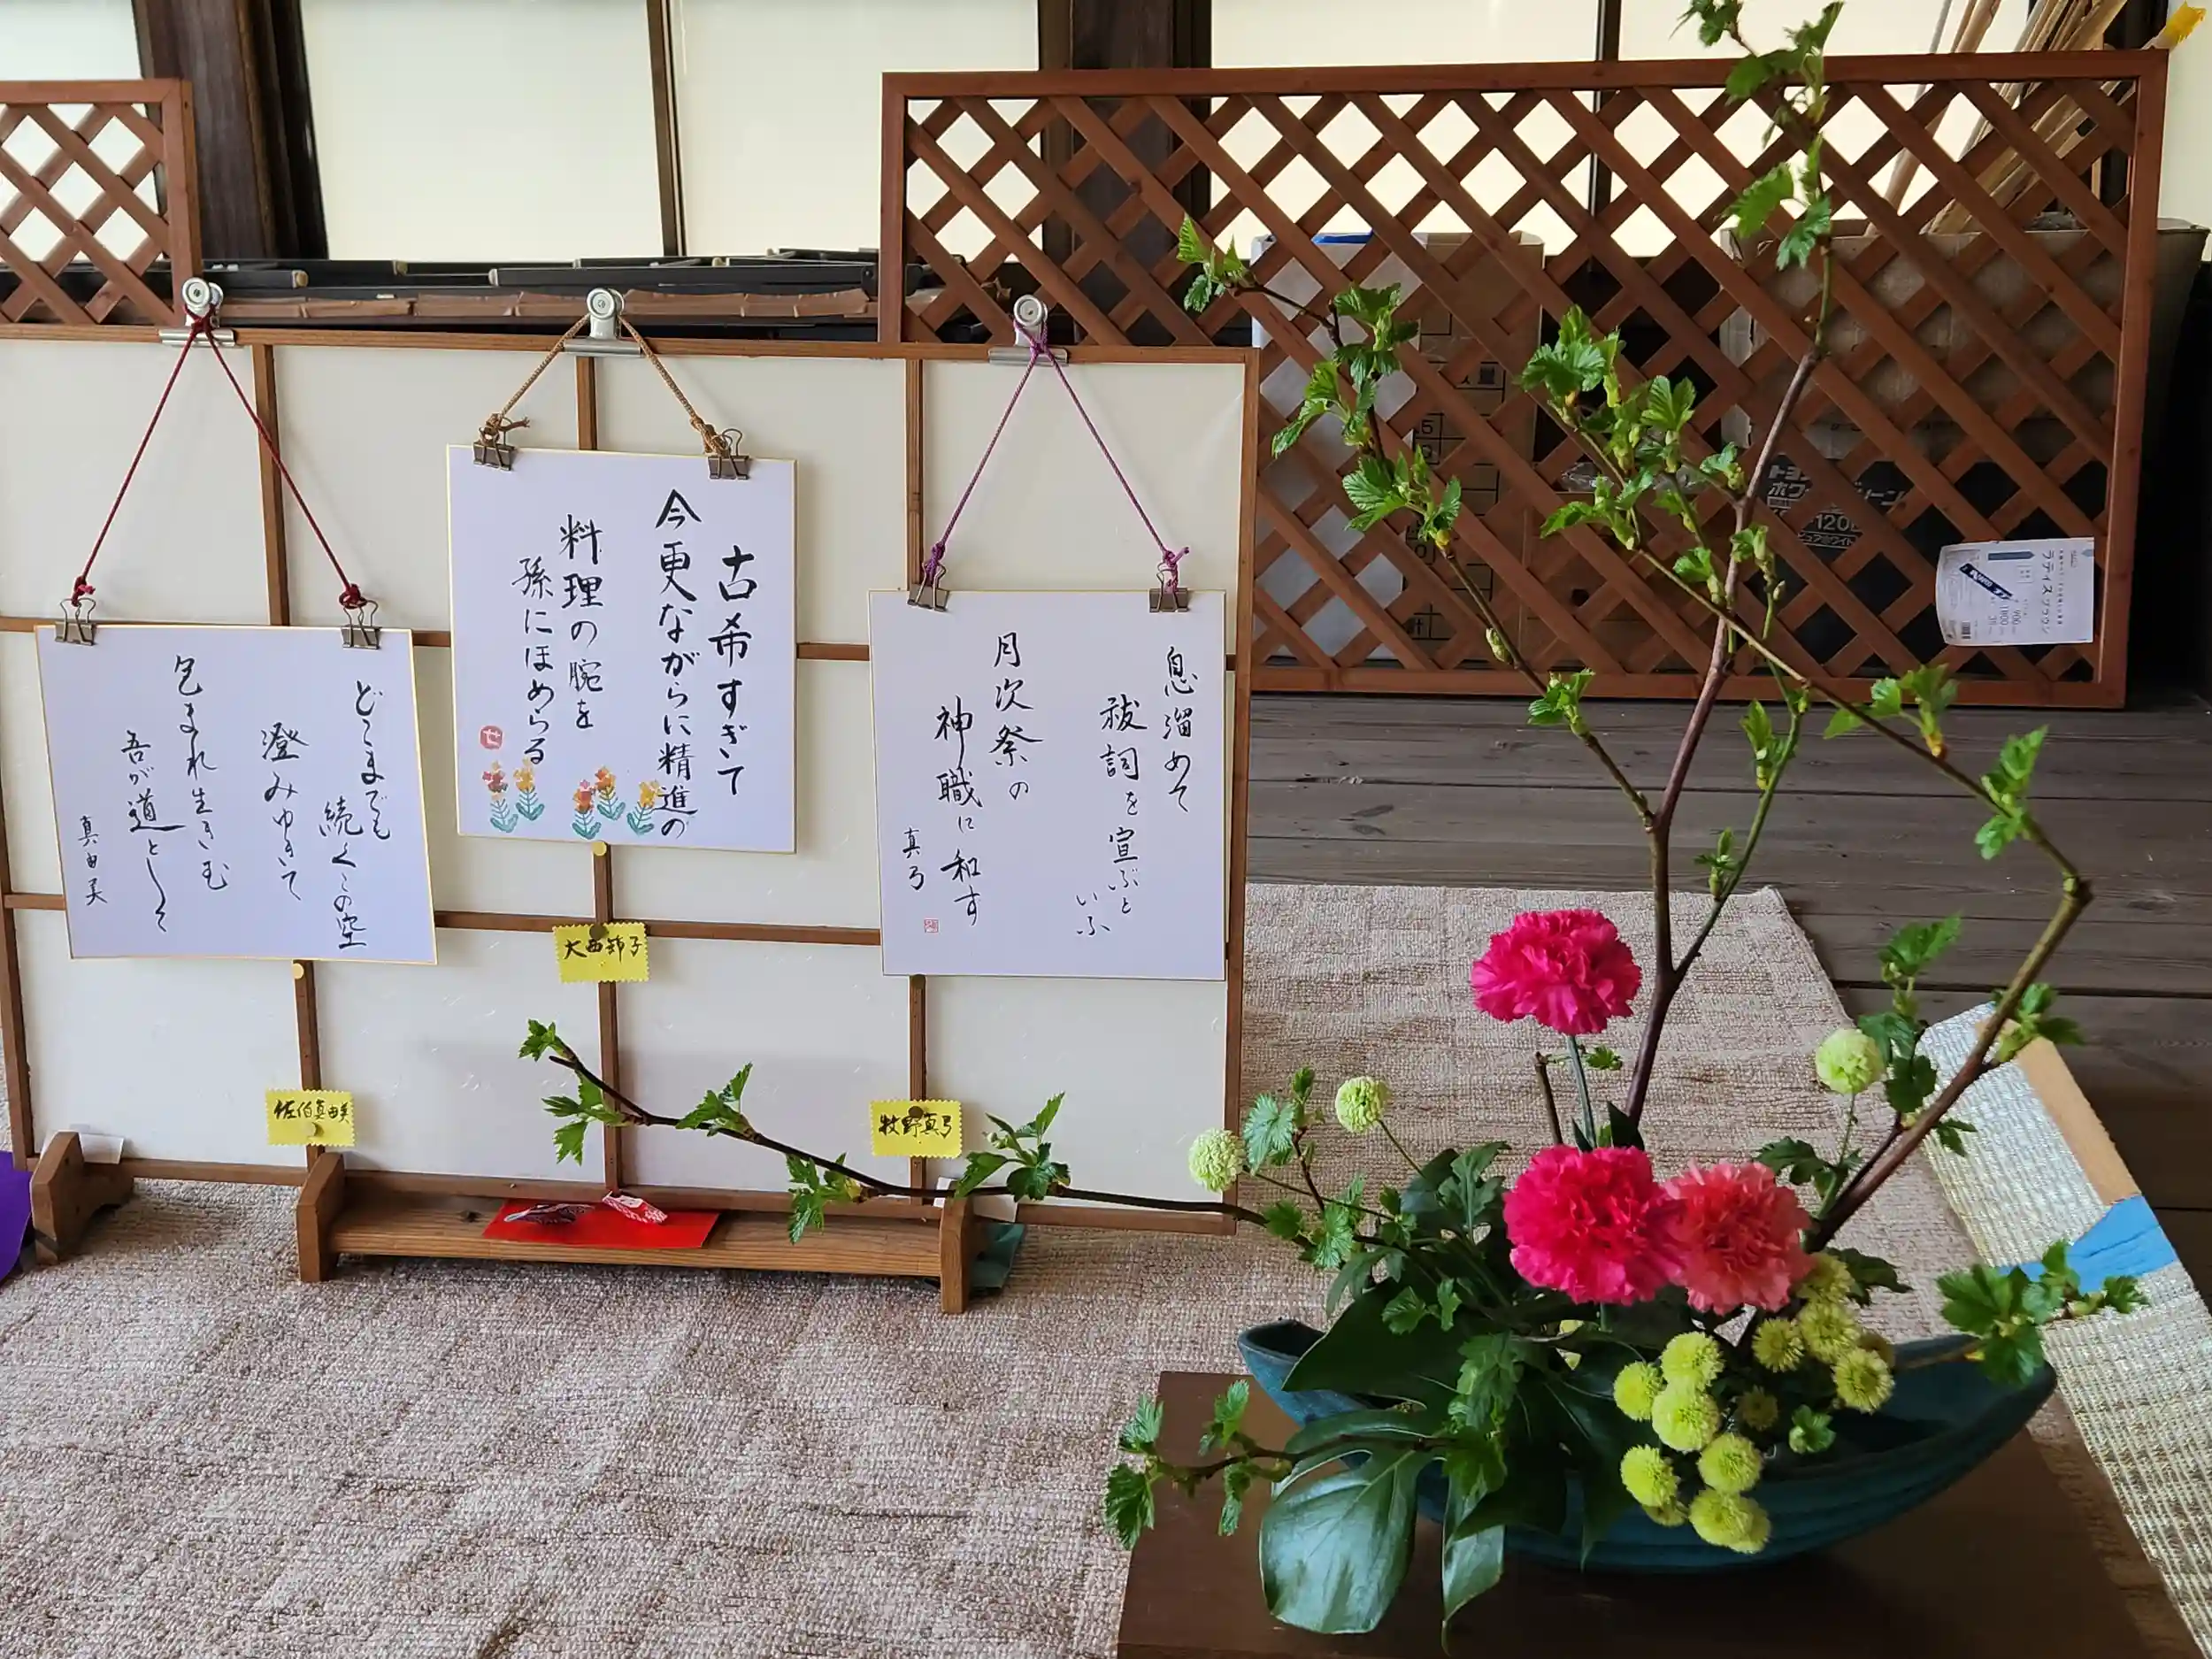 息溜めて
祓詞を宣ぶと
いふ
月次祭の
神職に和す
真弓
古希すぎて
今更ながらに精進の
料理の腕を
孫にほめらる
せ
どこまでも
続くこの空
澄みゆきて
包まれ生きむ
吾が道として
真由美
大西錦子
佐伯真由美
牧野真弓
ラティスブラウン
120